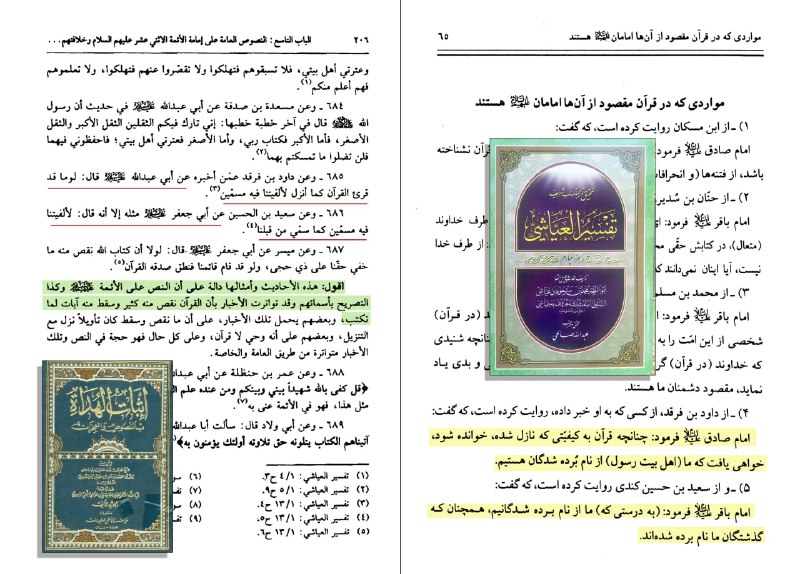 مواردی که در قرآن مقصود از آن‌ها امامان علیهم السلام هستند
۶۵
مواردی که در قرآن مقصود از آن‌ها امامان علیهم السلام هستند
۱) ـ از ابن مسکان روایت کرده است، که گفت:
امام صادق علیه السلام فرمود:
قرآن نشناخته
باشد، از فتنه‌ها (و انحرافا
۲) ـ از حنّان بن سُدیر
امام باقر علیه السلام فرمود: ای
طرف خداوند
(متعال)، در کتابش حقّی مح
: از طرف خدا
نیست، آیا اینان نمی‌دانند که
۳) ـ از محمد بن مسلم
امام باقر علیه السلام فرمود:
د (در قرآن)
شخصی از این امّت را به
چنانچه شنیدی
که خداوند (در قرآن) گر
و بدی یاد
نماید، مقصود دشمنان ما هستند.
۴) ـ از داود بن فرقد، از کسی که به او خبر داده، روایت کرده است، که گفت:
امام صادق علیه السلام فرمود: چنانچه قرآن به کیفیّتی که نازل شده، خوانده شود،
خواهی یافت که ما (اهل بیت رسول) از نام بُرده شدگان هستیم.
۵) ـ و از سعید بن حسین کندی روایت کرده است، که گفت:
امام باقر علیه السلام فرمود: (به درستی که) ما از نام برده شدگانیم، همچنان که
گذشتگان ما نام برده شده‌اند.
تفسير العياشي
عبدالله صالحی
٢٠٦
الباب التاسع: النصوص العامة على إمامة الأئمة الاثني عشر عليهم السلام وخلافتهم ...
وعترتي أهل بيتي، فلا تسبقوهم فتهلكوا، ولا تقصّروا عنهم فتهلكوا، ولا تعلموهم
فهم أعلم منكم(١).
٦٨٤ ـ وعن مسعدة بن صدقة عن أبي عبدالله عليه السلام في حديث أن رسول
الله ﷺ قال في آخر خطبة خطبها: إني تارك فيكم الثقلين الثقل الأكبر والثقل
الأصغر، فأما الأكبر فكتاب ربي، وأما الأصغر فعترتي أهل بيتي؛ فاحفظوني فيهما
فلن تضلوا ما تمسكتم بهما(٢).
٦٨٥ ـ وعن داود بن فرقد عمّن أخبره عن أبي عبدالله عليه السلام قال: لوما قد
قرئ القرآن كما أنزل لألفيتنا فيه مسمّين(٣).
٦٨٦ ـ وعن سعيد بن الحسين عن أبي جعفر عليه السلام مثله إلا إنه قال: لألفيتنا
فيه مسمّين كما سمّي من قبلنا(٤).
٦٨٧ ـ وعن ميسر عن أبي جعفر عليه السلام قال: لولا أن كتاب الله نقص منه ما
خفي حقّنا على ذي حجى، ولو قد قام قائمنا فنطق صدقه القرآن(٥).
اقول: هذه الأحاديث وأمثالها دالة على أن النص على الأئمة عليهم السلام وكذا
التصريح بأسمائهم وقد تواترت الأخبار بأن القرآن نقص منه كثير وسقط منه آيات لما
تكتب، وبعضهم يحمل تلك الأخبار، على أن ما نقص وسقط كان تأويلاً نزل مع
التنزيل، وبعضهم على أنه وحي لا قرآن، وعلى كل حال فهو حجة في النص وتلك
الأخبار متواترة من طريق العامة والخاصة.
٦٨٨ ـ وعن عمر بن حنظلة عن أبي عبد
﴿قل كفى بالله شهيداً بيني وبينكم ومن عنده علم ال
مثل هذا، فهو في الأئمة عنى به(٧).
٦٨٩ ـ وعن أبي ولاد قال: سألت أبا عبدالله
آتيناهم الكتاب يتلونه حق تلاوته أولئك يؤمنون به﴾
(١) تفسير العياشي: ٤/١ ح٣.
(٢) تفسير العياشي: ٥/١ ح٩.
(٣) تفسير العياشي: ١٣/١ ح٤.
(٤) تفسير العياشي: ١٣/١ ح٥.
(٥) تفسير العياشي: ١٣/١ ح٦.
(٦) سو
(٧) تفس
(٨) سور
(٩) تفس
إثبات الهداة